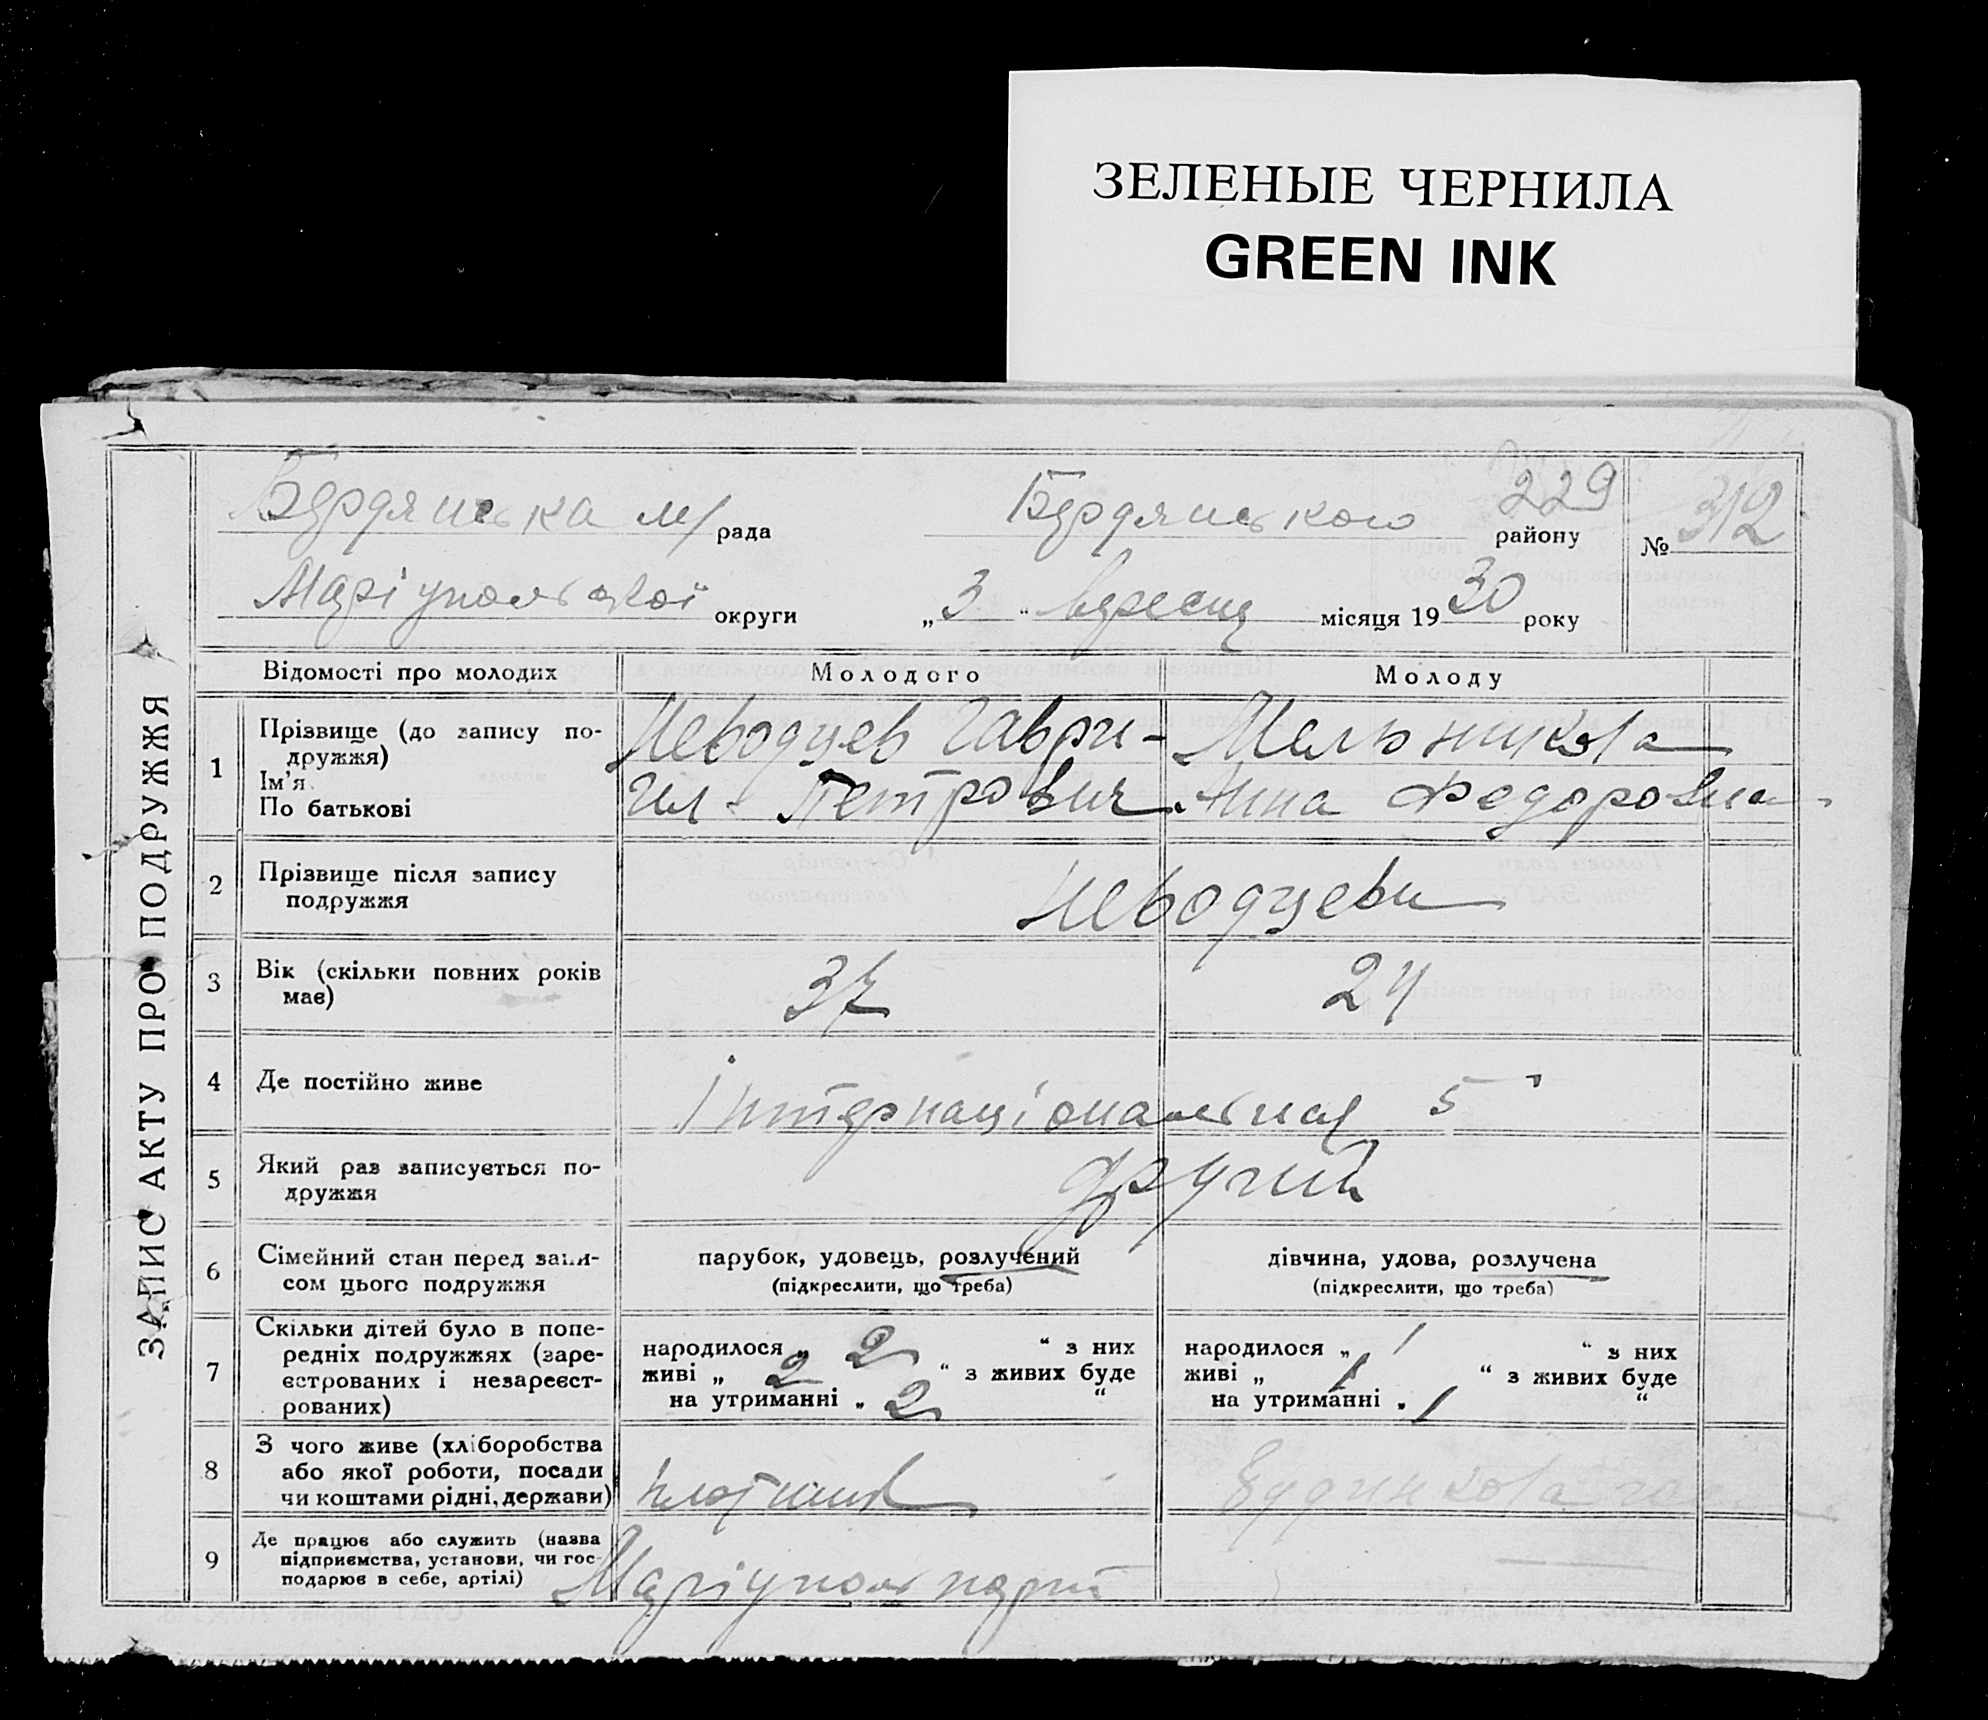 ЗЕЛЕНЫЕ ЧЕРНИЛА
GREEN INK
ЗАПИС АКТУ ПРО ПОДРУЖЖЯ
Бердянська м/рада Бердянського району 229 № 312
Маріупольської округи „3“ вересня місяця 1930 року
Відомості про молодих Молодого Молоду
1 Прізвище (до запису по-
дружжя)
Ім'я
По батькові
Неводцев Гаври-
ил Петрович
Мельникова
Анна Федоровна
2 Прізвище після запису
подружжя
Неводцеви
3 Вік (скільки повних років
має)
37 24
4 Де постійно живе
Інтернаціональная 5
5 Який раз записується по-
дружжя
другий
6 Сімейний стан перед запи-
сом цього подружжя
парубок, удовець, розлучений
(підкреслити, що треба)
дівчина, удова, розлучена
(підкреслити, що треба)
7 Скільки дітей було в попе-
редніх подружжях (заре-
єстрованих і незареєст-
рованих)
народилося „ 2 “ з них
живі „ 2 “ з живих буде
на утриманні „ 2 “
народилося „ 1 “ з них
живі „ 1 “ з живих буде
на утриманні „ 1 “
8 З чого живе (хліборобства
або якої роботи, посади
чи коштами рідні, держави)
плотник
9 Де працює або служить (назва
підприємства, установи, чи гос-
подарює в себе, артілі)
Маріуполь порт